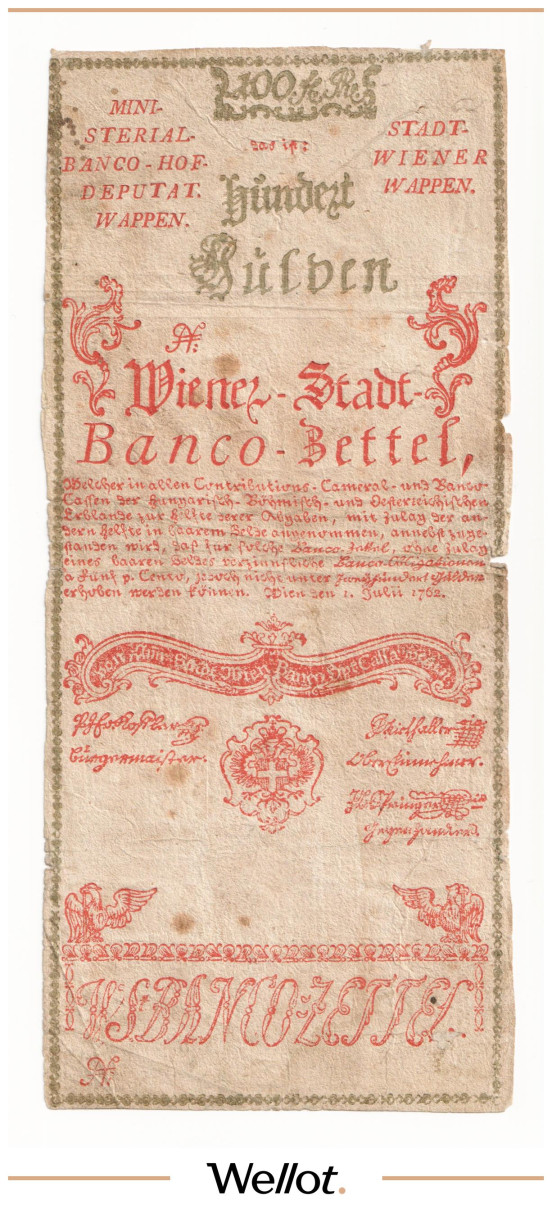 100 fl. Rh.
MINI-
STERIAL-
BANCO-HOF-
DEPUTAT.
WAPPEN.
das ist:
STADT-
WIENER
WAPPEN.
Hundert
Gulden
N:
Wiener-Stadt-
Banco-Zettel,
Welcher in allen Contributions- Cameral- und Banco-
Cassen der Hungarisch- Böhmisch- und Oesterreichischen
Erblande zur Helfte derer Abgaben, mit Zulag der an-
dern Helfte in baarem Gelde angenommen, annebst zuge-
standen wird, daß für solche Banco-Zettel, ohne Zulag
eines baaren Geldes verzinnsliche Banco-Obligationen
a Fünf p. Cento, jedoch nicht unter Zweyhundert Gulden
erhoben werden können. Wien den 1. Julii 1762.
Burgermaister.
Ober Einnehmer.
Gegenhandler.
W. St. BANCO-ZETTEL.
N:
Wellot.